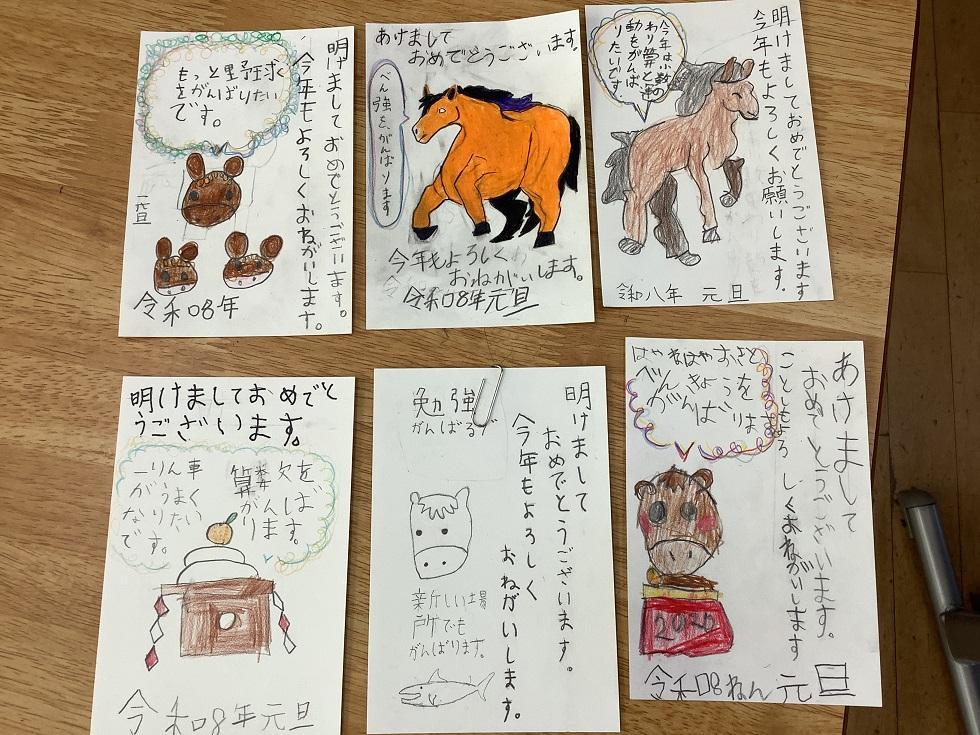 もっと野球
をがんばりたい
です。
明けまして おめでとうございます。
今年もよろしくおねがいします。
元旦
令和08年
あけまして
おめでとうございます。
べん強を、がんばります
今年もよろしく
おねがいします。
令和08年元旦
明けましておめでとうございます
今年もよろしくお願いします。
今年は小数の
わり算と運
動をがんば
りたいです
令和八年 元旦
明けましておめでと
うございます。
算数を
がんば
ります。
一りん車
がうまく
なりたい
です。
令和08年元旦
勉強
がんばるぞ
明けまして
おめでとうございます。
今年もよろしく
おねがいします。
新しい場
所でも
がんばります。
あけまして
おめでとうございます。
ことしもよろしくおねがいします
はやねはやおきと
べんきょうを
がんばります
2026
令和08ねん 元旦